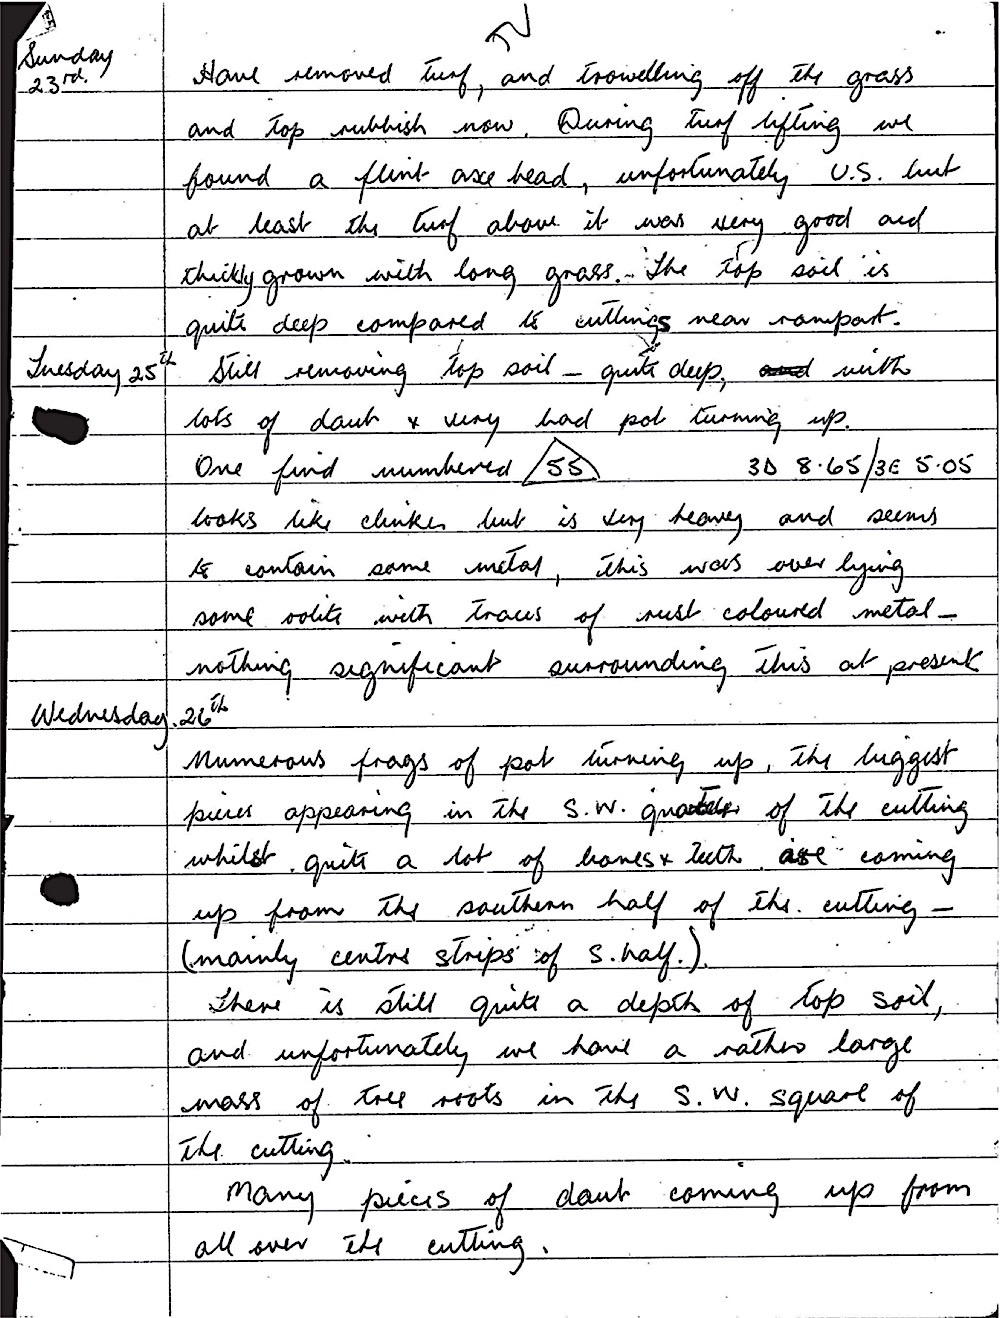 Sunday
23rd.
Have removed turf, and trowelling off the grass
and top rubbish now. During turf lifting we
found a flint axe head, unfortunately U.S. but
at least the turf above it was very good and
thickly grown with long grass. The top soil is
quite deep compared to cuttings near rampart.
Tuesday 25th Still removing top soil – quite deep, and with
lots of daub & very bad pot turning up.
One find numbered 55 3D 8.65/3E 5.05
looks like clinker but is very heavy and seems
to contain some metal, this was over lying
some oolite with traces of rust coloured metal –
nothing significant surrounding this at present
Wednesday. 26th
Numerous frags of pot turning up, the biggest
pieces appearing in the S.W. quarter of the cutting
whilst quite a lot of bones & teeth are coming
up from the southern half of the cutting –
(mainly centre strips of S. half.).
There is still quite a depth of top soil,
and unfortunately we have a rather large
mass of tree roots in the S.W. square of
the cutting.
Many pieces of daub coming up from
all over the cutting.